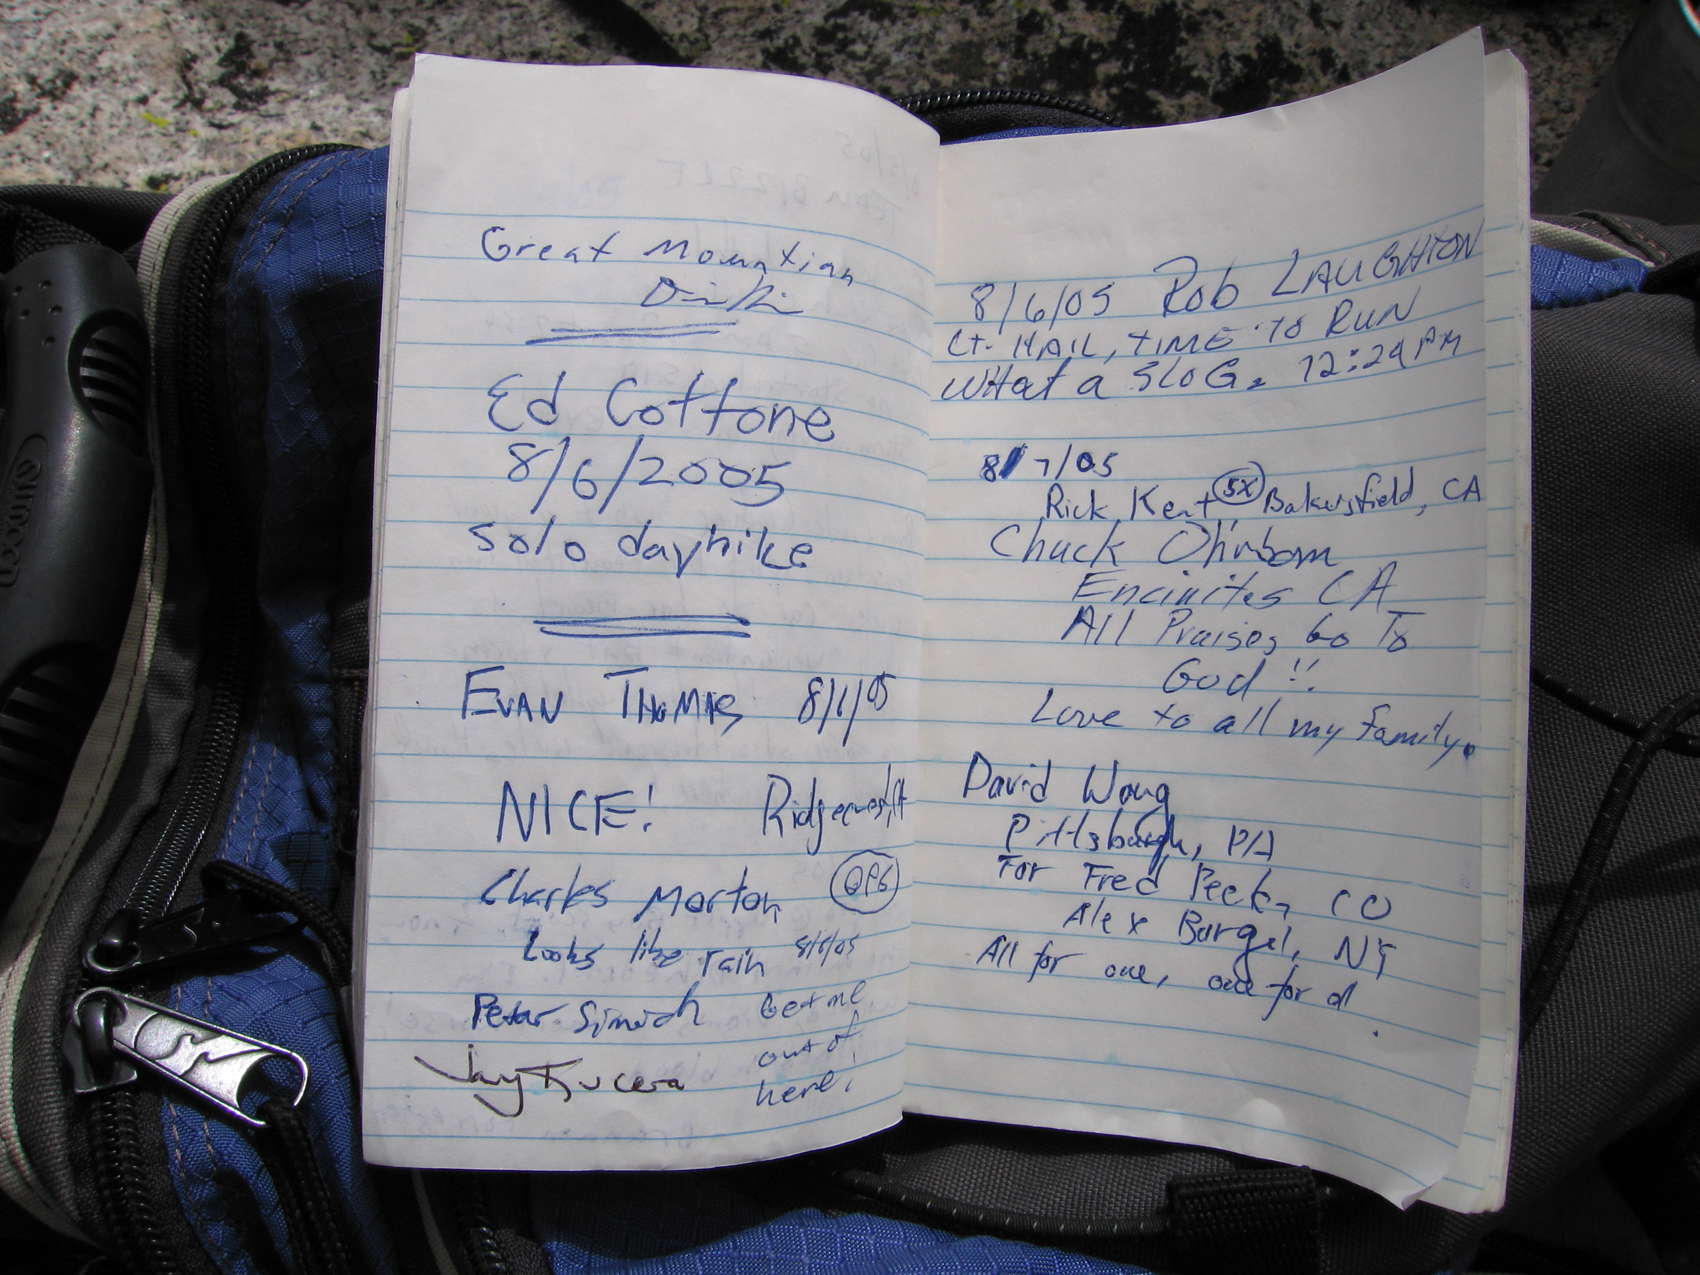 Great Mountian
Ed Cottone
8/6/2005
solo dayhike
EVAN THOMAS 8/6/05
NICE! Ridgecrest, CA
Charles Morton
Looks like rain 8/6/05
Peter Simich Get me
out of
Jay Kucera
here!
8/6/05 Rob LAUGHTON
Lt. HAIL, TIME TO RUN
WHat a SLOG. 12:29 PM
8/7/05
Rick Kent 5X Bakersfield, CA
Chuck
Encinites CA
All Praises Go To
God!!
Love to all my family.
David Wong
Pittsburgh, PA
For Fred Peck, CO
Alex Burgel, NY
All for one, one for all